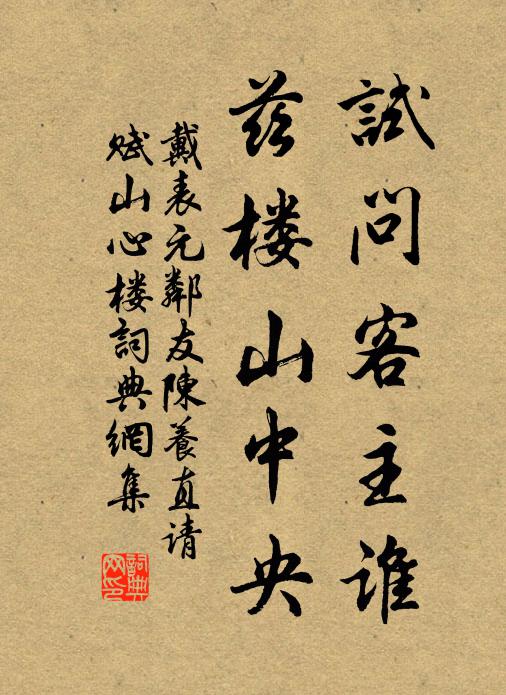 試问客主誰
兹楼山中央
戴表元鄰友陳養直请
赋山心楼詞典網集
詞典网印